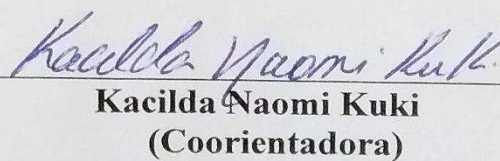 Kacilda Naomi Kuki
Kacilda Naomi Kuki
(Coorientadora)